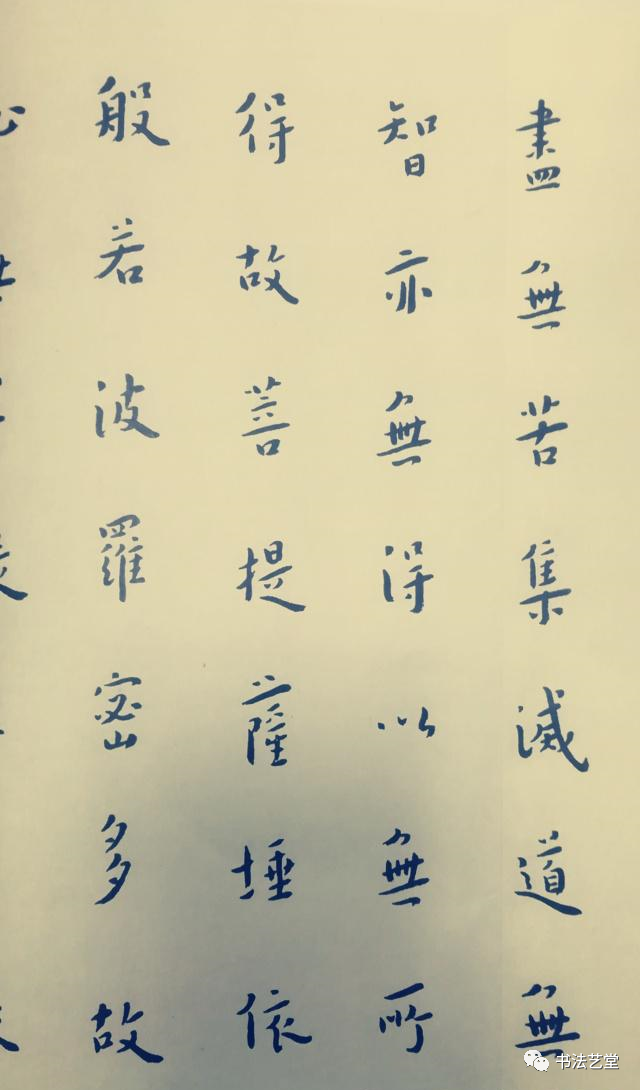 盡無苦集滅道無
智亦無得以無所
得故菩提薩埵依
般若波羅密多故
书法艺堂